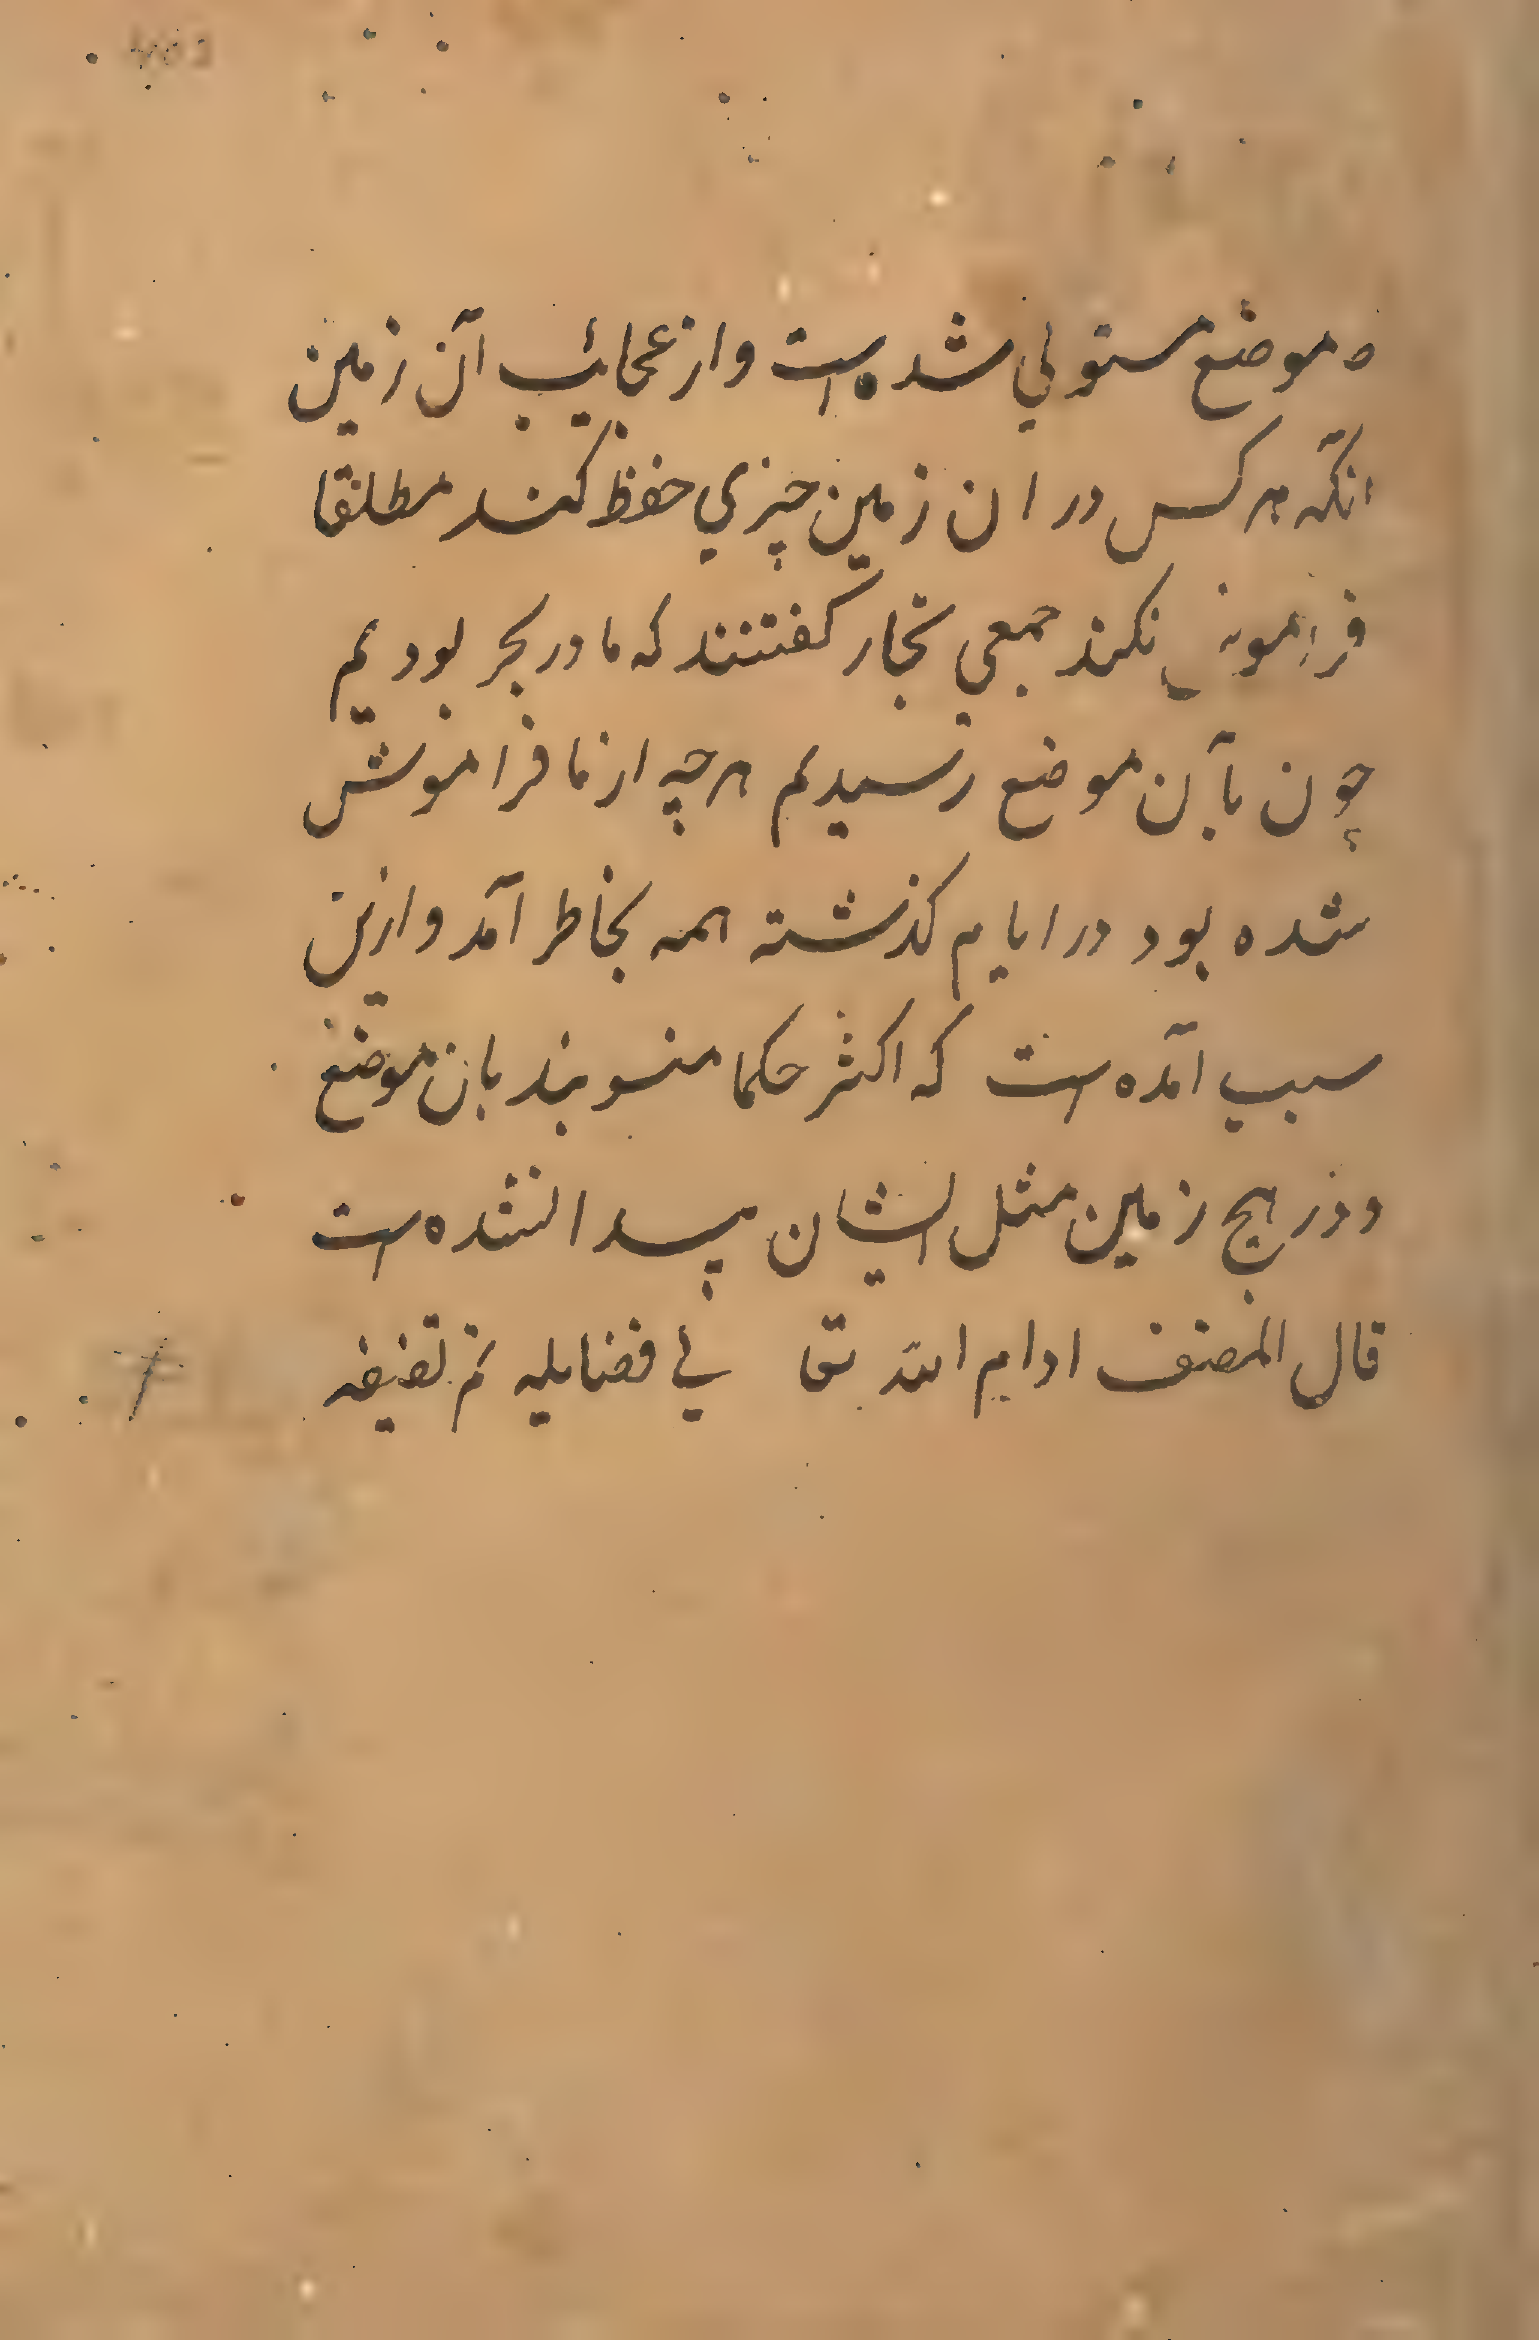 ه موضع مستولي شده است و از عجائب آن زمين
انكه هر كس در ان زمين چيزي حفظ كند مطلقا
فراموش نكند جمعي تجار كفتند كه ما در بحر بوديم
چون بآن موضع رسيديم هرچه از ما فراموش
شده بود در ايام كذشته همه بخاطر آمد و ازين
سبب آمده است كه اكثر حكما منسوبند بان موضع
و در هيچ زمين مثل ايشان پيدا نشده است
قال المصنف ادام الله تعا في فضايله تم